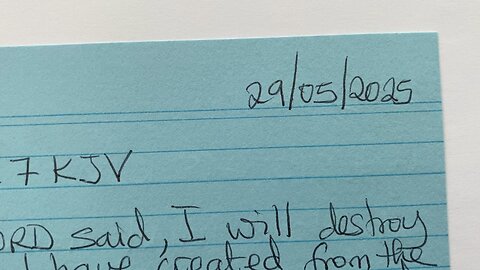 29/05/2025
7 KJV
ORD said, I will destroy
I have created from the